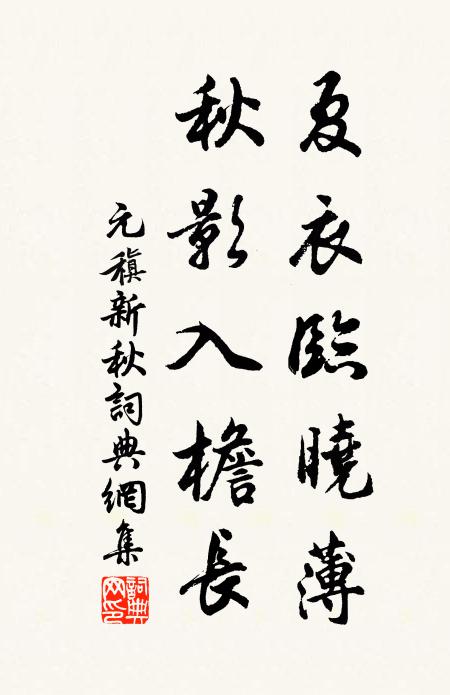 夏衣臨曉薄
秋影入檐長
元稹新秋詞典網集
詞典網印